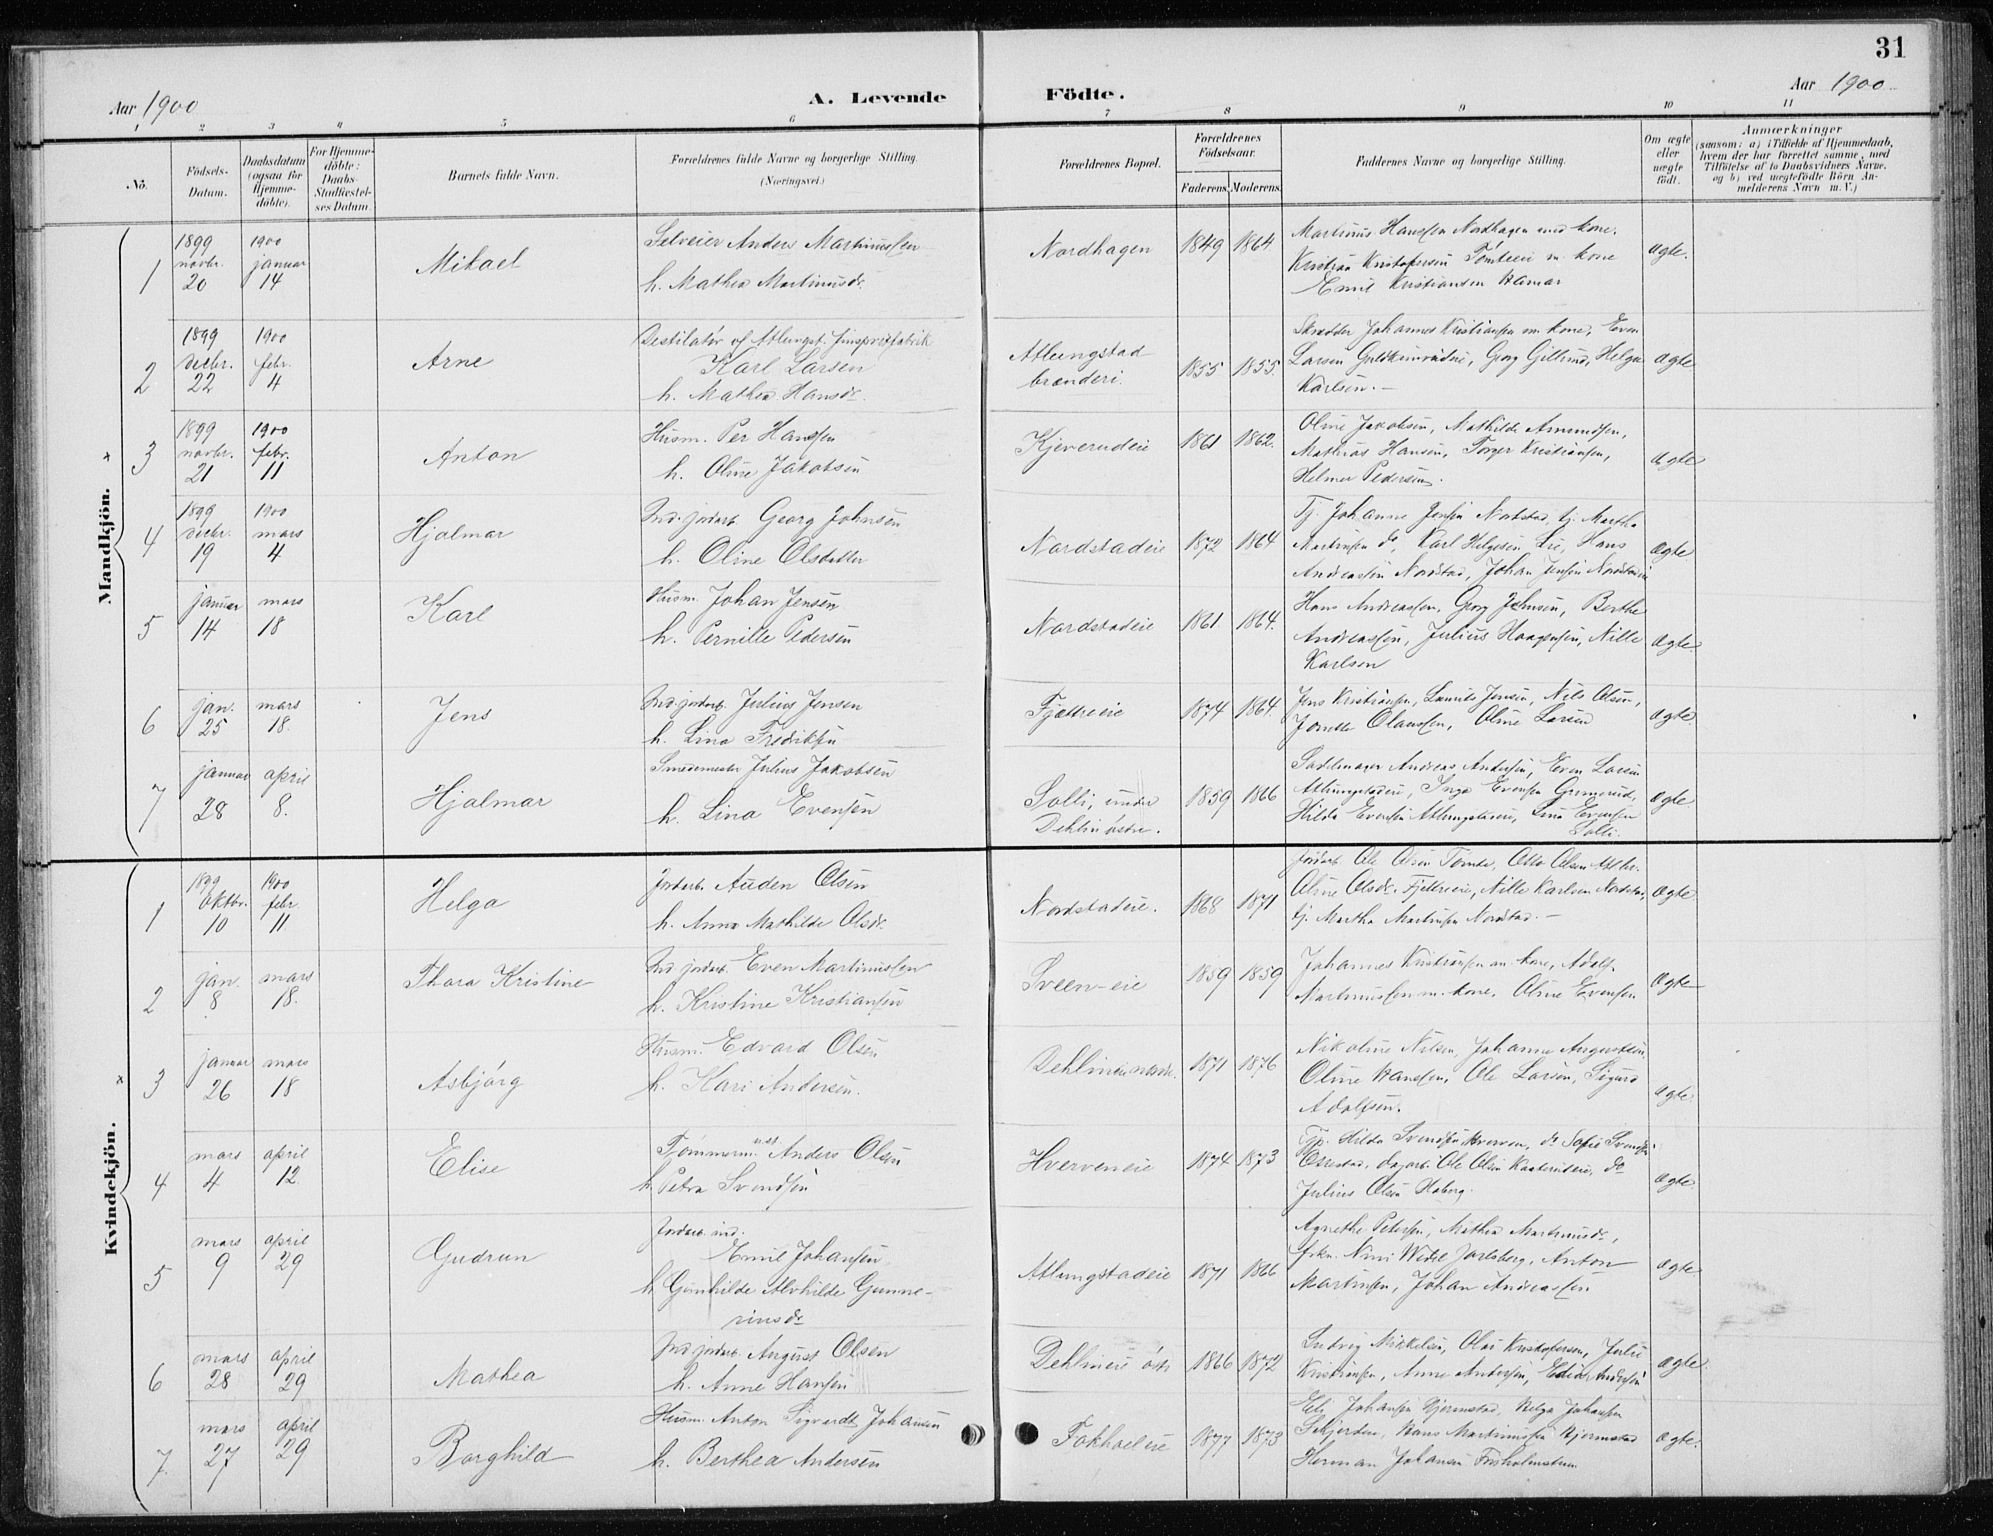 31
Aar 1900
A. Levende Födte.
Aar 1900
1 2 3 4 5 6 7 8 9 10 11
No.
Födsels-
Datum.
Daabsdatum
(ogsaa for
Hjemme-
döbte).
For Hjemme-
döbte:
Daabs-
Stadfæstel-
ses Datum.
Barnets fulde Navn.
Forældrenes fulde Navne og borgerlige Stilling.
(Næringsvei.)
Forældrenes Bopæl.
Forældrenes
Födselsaar.
Faderens. Moderens.
Faddernes Navne og borgerlige Stilling.
Om ægte
eller
uægte
födt.
Anmærkninger
(saasom: a) i Tilfælde af Hjemmedaab,
hvem der har forrettet samme, med
Tilföielse af to Daabsvidners Navne.
og b) ved uægtefödte Börn An-
melderens Navn m. V.)
Mandkjön.
1
1899 novbr. 20
1900 januar 14
Mikael
Selveier Anders Martinussen
h. Mathea Martinusdr.
Nordhagen
1849 1864
Martinus Hanssen Nordhagen med kone.
Kristian Kristofersen m. kone
Emil Kristiansen Hamar
ægte.
2
1899 decbr. 22
1900 febr. 4
Arne
Destilatör of Atlungst.
Karl Larsen
h. Mathea Hansdr.
Atlungstad
brænderi.
1855 1855.
Skredder Johannes Kristiansen m. kone, Even
Larsen Georg Gillund, Helga
Karlsen. —
ægte
3
1899 novbr. 21
1900 febr. 11
Anton
Husm. Per Hansen
h. Oline Jakobsen
Kjeverudeie
1861 1862.
Oline Jakobsen, Mathilde Amundsen,
Mathias Hansen, Torger Kristiansen,
Helmer Pedersen.
ægte
4
1899 decbr. 19
1900 mars 4
Hjalmar
Ind. jordarb. Georg Johnsen
h. Oline Olsdatter
Nordstadeie
1872 1864
Tj. Johanne Jensen Nordstad, tj. Martha
Martinsen do, Karl Helgesen Lie, Hans
Andreassen Nordstad, Johan Jensen Nordstadeie
ægte
5
januar 14
mars 18
Karl
Husm. Johan Jensen
h. Pernille Pedersen
Nordstadeie
1861. 1864.
Hans Andreassen, Georg Johnsen, Berthe
Andreassen, Julius Haagensen, Nille
Karlsen
ægte
6
jan. 25
mars 18.
Jens
Ind. jordarb. Julius Jensen
h. Lina Fredriksen
Fjettreeie
1874 1864.
Jens Kristiansen, Laurits Jensen, Nils Olsen,
Jonette Olaussen, Oline Larsen
ægte
7
januar 28
april 8.
Hjalmar
Smedemester Julius Jakobsen
h. Lina Evensen
Solli, under
Dehlin östre.
1859 1866
Sadlmager Andreas Andersen, Even Larsen
Atlungstadeie, Inga Evensen Grimerud,
Hilda Evensen Atlungstadeie, Lina Evensen
Solli.
ægte
Kvindekjön.
1
1899 oktbr. 10
1900 febr. 11
Helga
Jordarb. Auden Olsen
h. Anna Mathilde Olsdr.
Nordstadeie.
1868 1871
Jordarb. Ole Olsen Tomte, Otto Olsen
Oline Olsdr. Fjettreeie, Nille Karlsen Nordstad,
tj. Martha Martinsen Nordstad. —
ægte
2
jan. 8
mars 18.
Thora Kristine
Ind. jordarb. Even Martinussen
h. Kristine Kristiansen
Sveen-eie
1859 1859
Johannes Kristiansen m. kone, Adolf
Martinussen m. kone, Oline Evensen
ægte
3
januar 26
mars 18
Asbjörg
Husm. Edvard Olsen
h. Kari Andersen.
Dehlineie
1871 1876
Nikoline Nilsen, Johanne Augustsen,
Oline Hanssen, Ole Larsen, Sigurd
Adolfsen.
ægte.
4
mars 4
april 12
Elise
Tömmerm. Anders Olsen
h. Petra Svendsen
Hverveneie
1874 1873
Tj. Hilda Svendsen Hverven, do Sofie Svendsen
dagarb. Ole Olsen do
Julius Olsen Haberg.
ægte.
5
mars 9
april 29
Gudrun
Jordarb. ind.
Emil Johansen
h. Gunhilde Alvhilde Gunne-
riusdr
Atlungstadeie
1871 1866
Agnethe Petersen, Mathea Martinusdr.,
frkn. Nini Wedel Jarlsberg, Anton
Martinsen, Johan Andreassen
ægte
6
mars 28
april 29
Mathea
Ind. jordarb. August Olsen
h. Anne Hansen
Dehlineie östr
1866 1872
Ludvig Mikkelsen, Olai Kristofersen, Julie
Kristiansen, Anne Andersen, Andersen
ægte.
7.
mars 27
april 29
Borghild
Husm. Anton Sigvardt Johansen
h. Berthea Andersen
Fokholeie
1877 1873
Eli Johansen Hjermstad, Helga Johansen
Hans Martinussen Hjermstad
Herman Johansen
ægte.